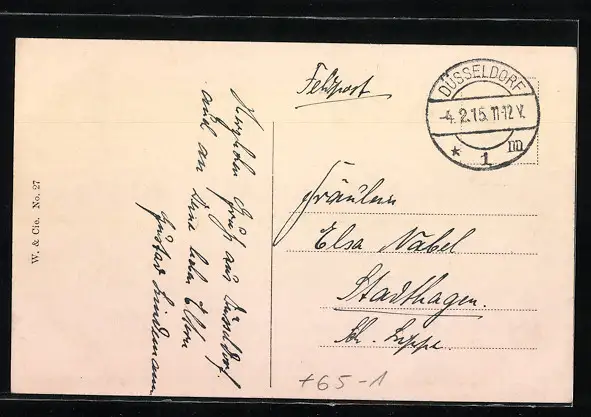 Feldpost
DÜSSELDORF
-4.2.15.11-12 V.
* 1 nn
Fräulein
Elsa Nabel
Stadthagen.
Sch. Lippe.
Herzlichen Gruß aus Düsseldorf.
auch an deine lieben Eltern
Gustav Lindemann
W. & Cie. No. 27
+65-1